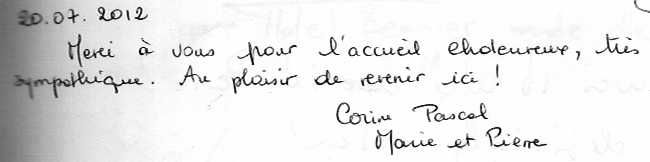 20.07.2012
Merci à vous pour l'accueil chaleureux, très
sympathique. Au plaisir de revenir ici !
Corine Pascal
Marie et Pierre